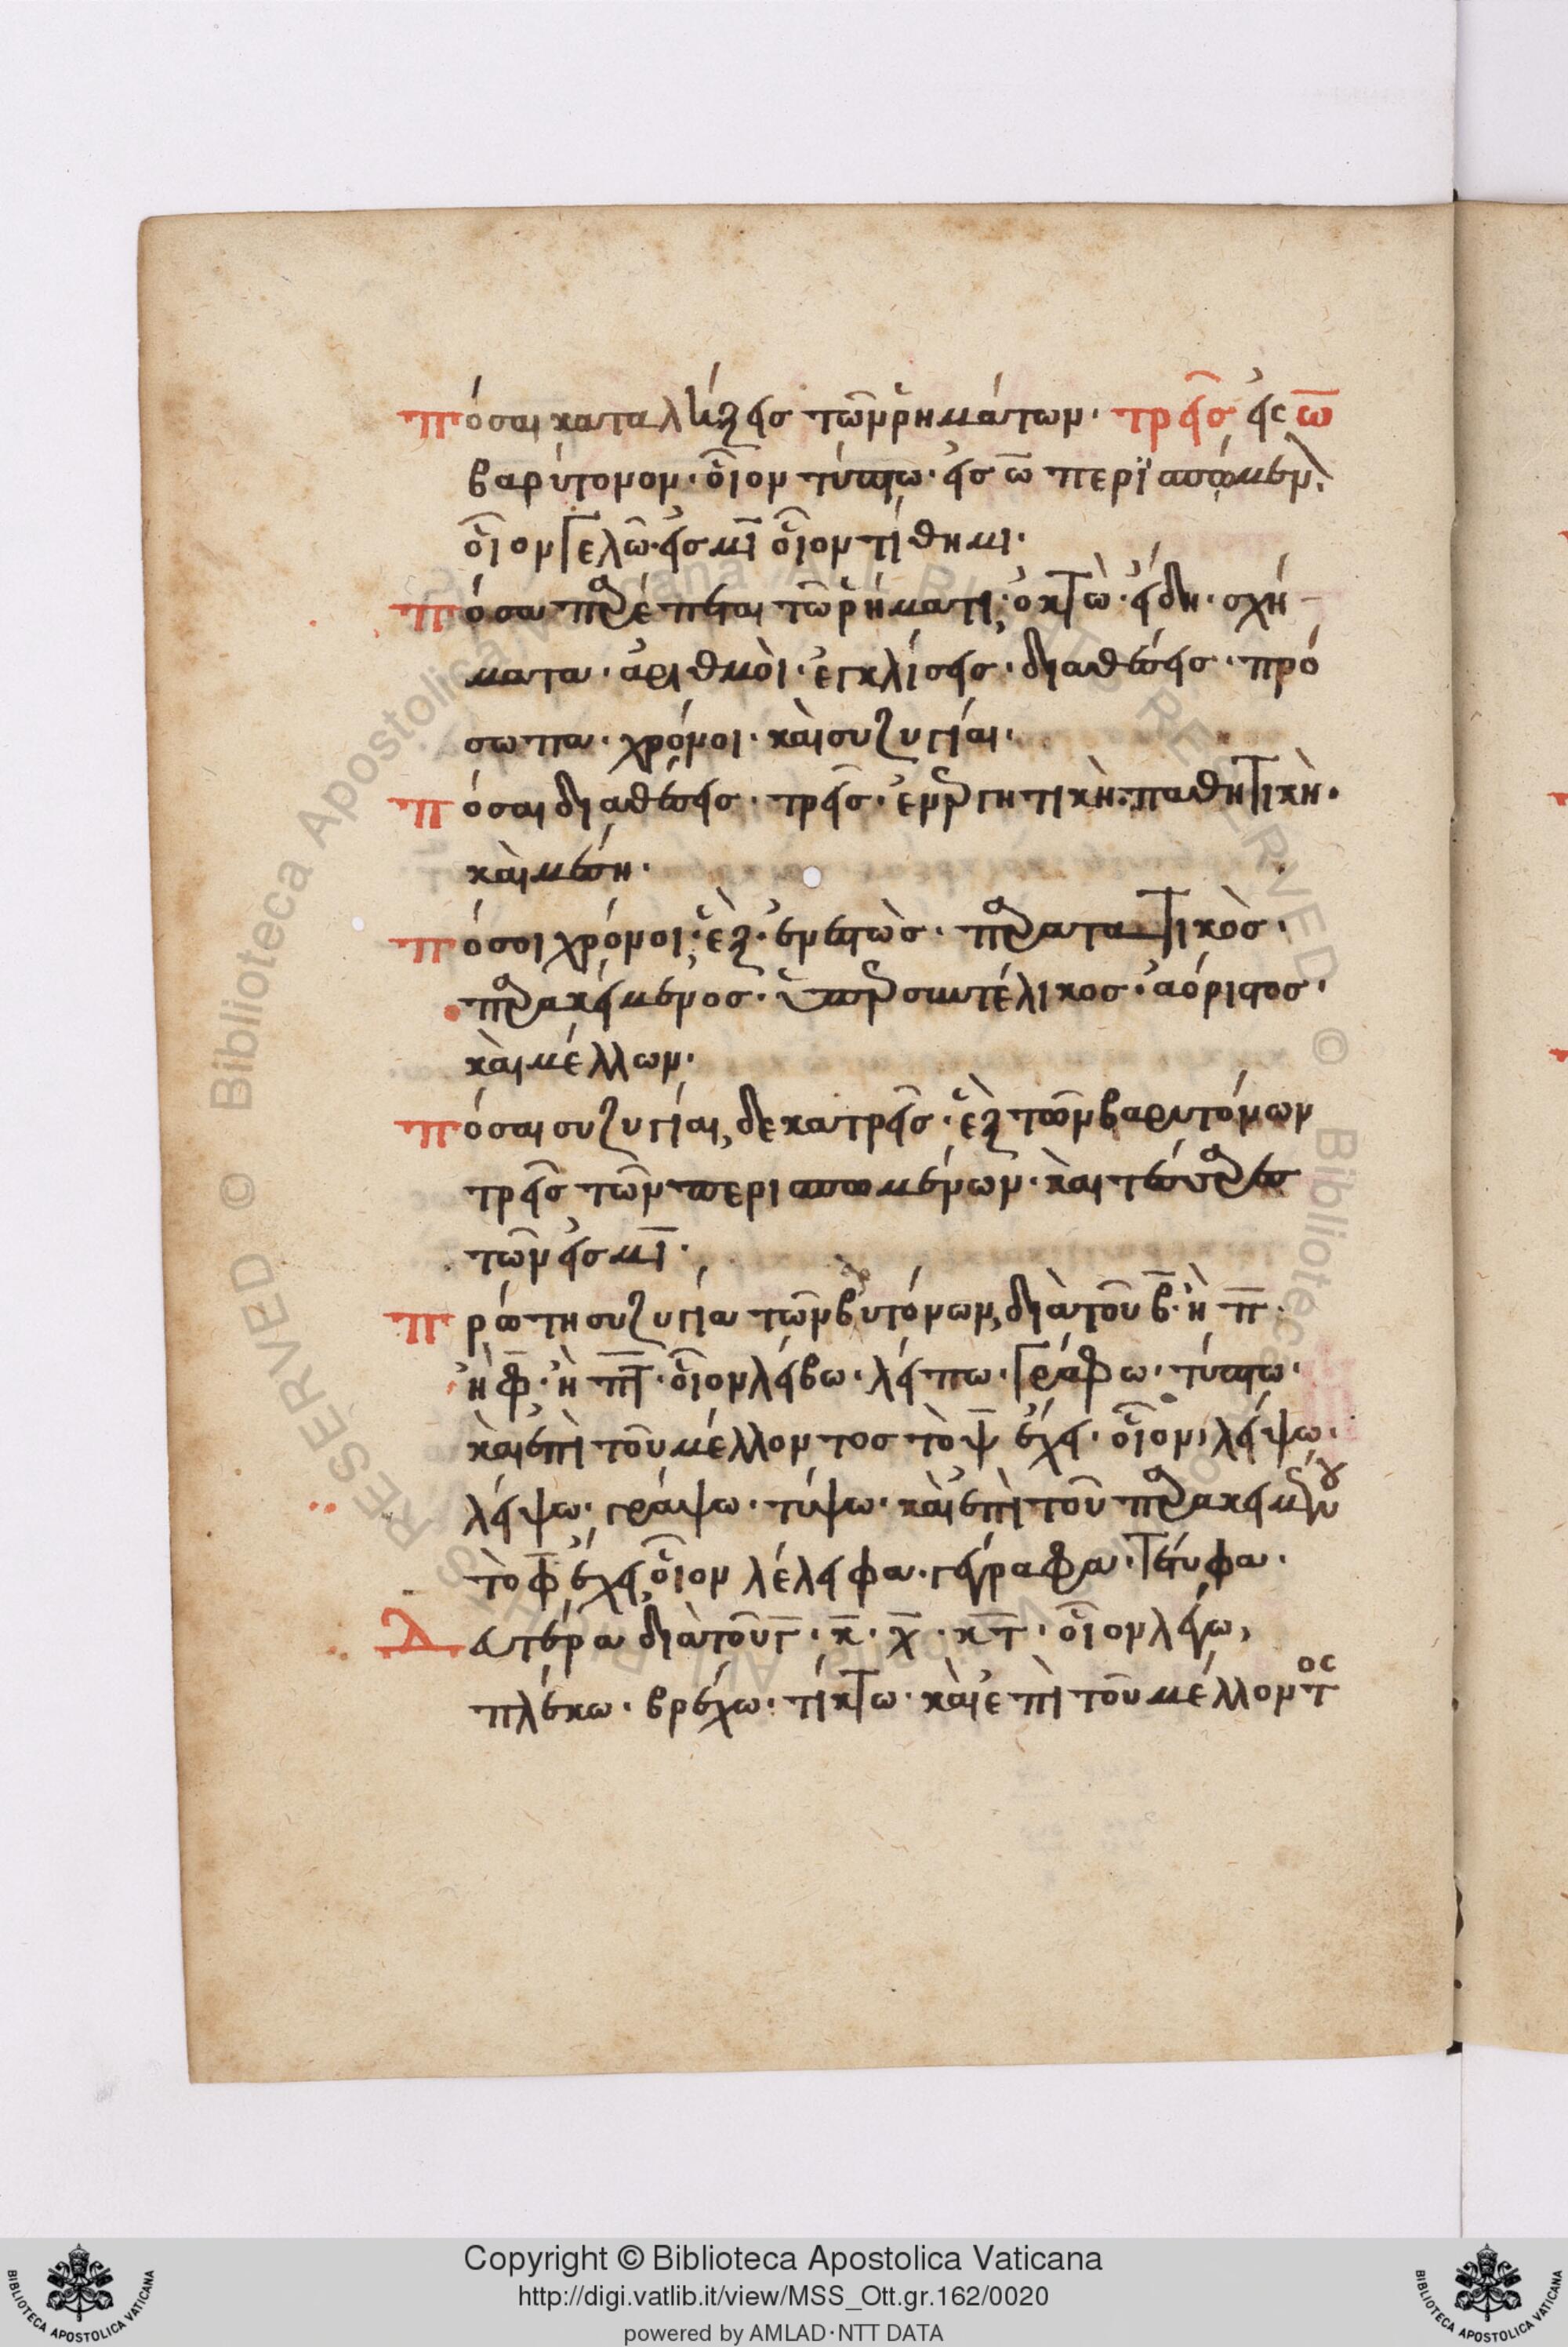 πόσαι καταλήξεις τῶν ῥημάτων· τρεῖς· εἰς ω̅
βαρύτονον· οἷον τύπτω· εἰς ω̅ περισπώμενον·
οἷον γελῶ· εἰς μι̅ οἷον τίθημι·
πόσα παρέπεται τῶ ῥήματι; ὀκτὼ· εἴδη· σχή
ματα· ἀριθμοὶ· ἐγκλίσεις· διαθέσεις· πρό
σωπα· χρόνοι· καὶ συζυγίαι·
πόσαι διαθέσεις· τρεῖς· ἐνεργητικὴ· παθητικὴ·
καὶ μέση·
πόσοι χρόνοι; ἓξ· ἐνεστὼς· παρατατικὸς·
παρακείμενος· ὑπερσυντέλικος· ἀόριστος·
καὶ μέλλων·
πόσαι συζυγίαι, δεκατρεῖς· ἓξ τῶν βαρυτόνων
τρεῖς τῶν περισπωμένων· καὶ τέσσαρες
τῶν εἰς μι̅·
πρώτη συζυγία τῶν βαρυτόνων, διὰ τοῦ β̅· ἢ π̅·
ἢ φ̅· ἢ π̅τ̅· οἷον λείβω· λείπω· γράφω· τύπτω·
καὶ ἐπὶ τοῦ μέλλοντος τὸ ψ̅ ἔχει· οἷον, λείψω·
λείψω· γράψω· τύψω· καὶ ἐπὶ τοῦ παρακειμένου
τὸ φ̅ ἔχει, οἷον λέλειφα· γέγραφα· τέτυφα·
Δευτέρα διὰ τοῦ γ̅· κ̅· χ̅· κ̅τ̅· οἷον λέγω,
πλέκω· βρέχω· τίκτω· καὶ ἐπὶ τοῦ μέλλοντος
Copyright © Biblioteca Apostolica Vaticana
http://digi.vatlib.it/view/MSS_Ott.gr.162/0020
powered by AMLAD·NTT DATA